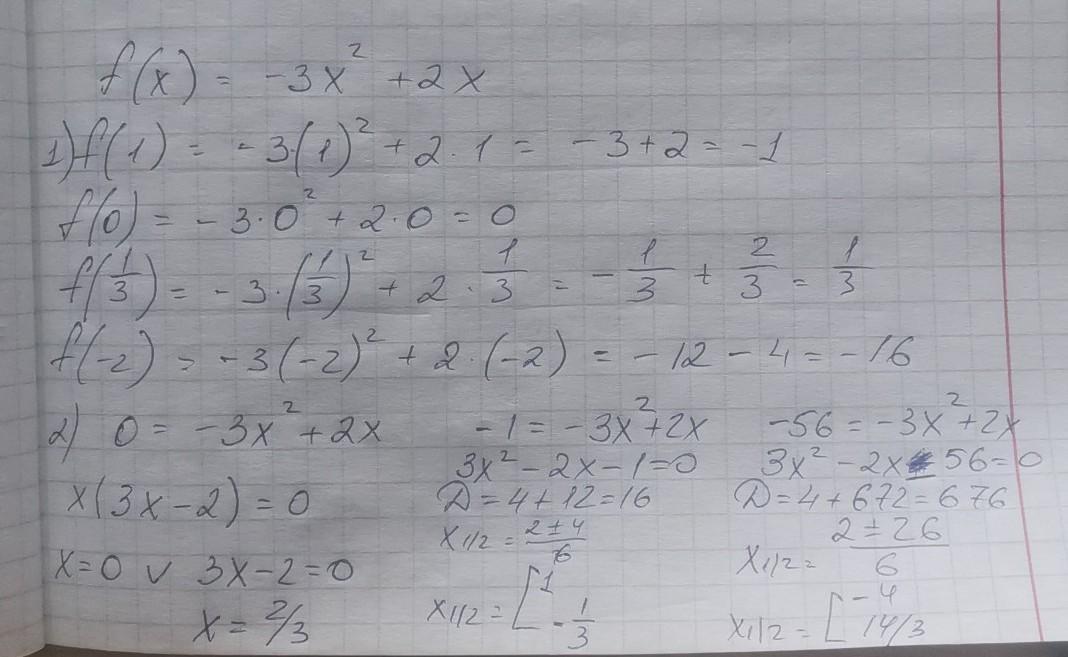 f(x) = -3x² + 2x
1) f(1) = -3·(1)² + 2·1 = -3+2 = -1
f(0) = -3·0² + 2·0 = 0
f(1/3) = -3·(1/3)² + 2·1/3 = -1/3 + 2/3 = 1/3
f(-2) = -3(-2)² + 2·(-2) = -12 - 4 = -16
2) 0 = -3x² + 2x
x(3x-2) = 0
x=0 ∨ 3x-2=0
x = 2/3
-1 = -3x²+2x
3x²-2x-1=0
D=4+12=16
x1/2 = (2±4)/6
x1/2 = [1
-1/3
-56 = -3x²+2x
3x²-2x-56=0
D=4+672=676
x1/2 = (2±26)/6
x1/2 = [-4
14/3